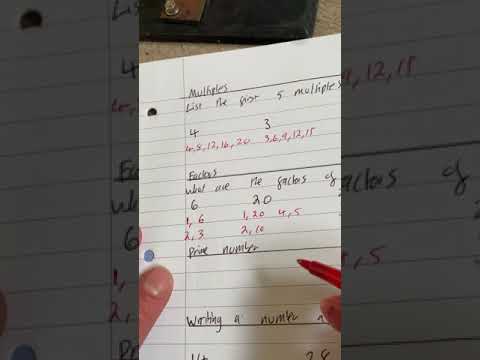 Multiples
List the first 5 multiples
4 3
4,8,12,16,20 3,6,9,12,15
Factors
What are the factors of
6 20
1,6 1,20 4,5
2,3 2,10
Prime number
Writing a number
28